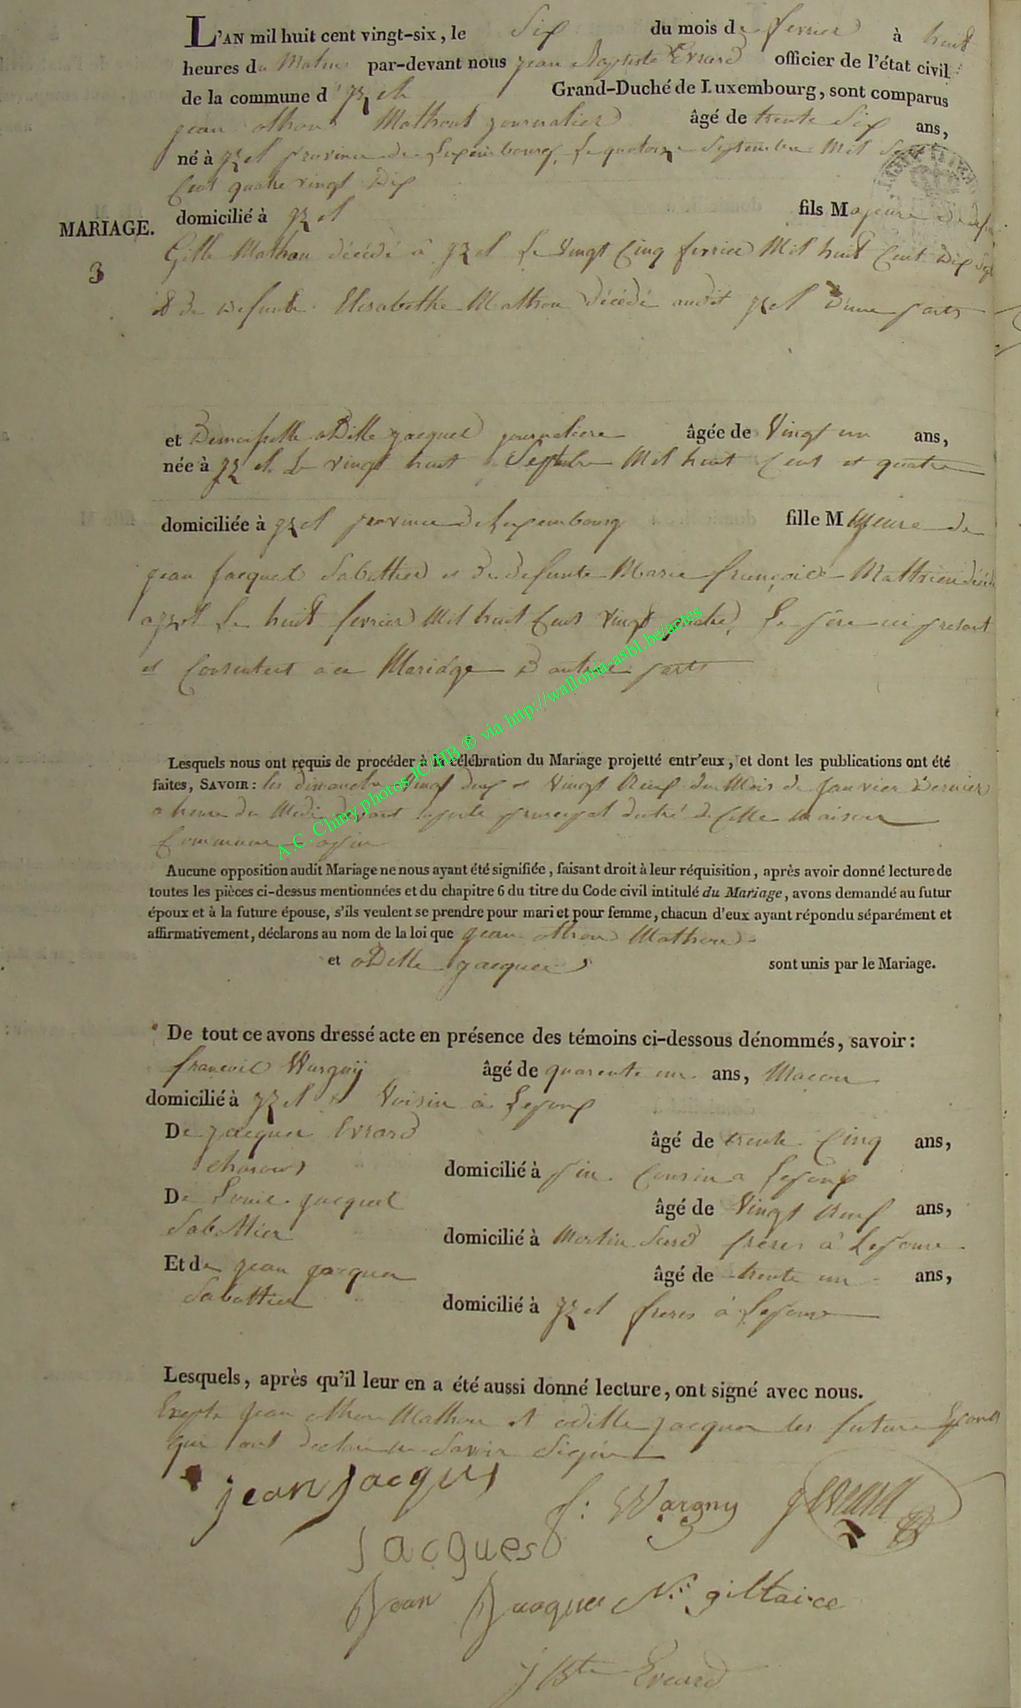 L'AN mil huit cent vingt-six, le Six du mois de fevrier à huit
heures du Matin par-devant nous jean Baptiste Evrard officier de l'état civil
de la commune d'yzel Grand-Duché de Luxembourg, sont comparus
jean othon Mathout journalier âgé de trente Six ans,
né à yzel province de Luxembourg, le quatorze Septembre Mil Sept
Cent quatre vingt Dix
MARIAGE. domicilié à yzel fils Majeure de defu
3
Gille Mathon décédé à yzel le Vingt Cinq fevrier Mil huit Cent Dix Sept
et de defunte Elisabethe Mathon décédé audit yzel D'une parts
et Demoiselle oDille jacquet journaliere âgée de Vingt un ans,
née à yzel le vingt huit Septbre Mil huit Cent et quatre
domiciliée à yzel province de Luxembourg fille Majeure de
jean jacquet Sabottier et de defunte Marie françoise décédé
a yzel le huit fevrier Mil huit Cent Vingt quatre, le père ici present
et Consentent a ce Mariage D'autre parts
A.C. Chiny photos JC/HB ® via http://wallonia-asbl.be/actes
Lesquels nous ont requis de procéder à la célébration du Mariage projetté entr'eux, et dont les publications ont été
faites, SAVOIR: les dimanche Vingt deux et Vingt Neuf du Mois de Janvier Dernier
a heure du Midi devant la porte principal de Cette Maison
Commune
Aucune opposition audit Mariage ne nous ayant été signifiée, faisant droit à leur réquisition, après avoir donné lecture de
toutes les pièces ci-dessus mentionnées et du chapitre 6 du titre du Code civil intitulé du Mariage, avons demandé au futur
époux et à la future épouse, s'ils veulent se prendre pour mari et pour femme, chacun d'eux ayant répondu séparément et
affirmativement, déclarons au nom de la loi que jean othon Mathon
et oDille jacques sont unis par le Mariage.
De tout ce avons dressé acte en présence des témoins ci-dessous dénommés, savoir:
françois Wargny âgé de quarente un ans, Maçon
domicilié à yzel Voisin à Lepoux
De jacques Evrard âgé de trente Cinq ans,
domicilié à pin Cousin a Lepoux
De Louis jacquet âgé de Vingt Neuf ans,
Sabottier domicilié à freres à Lepouse
Et de jean jacques âgé de trente un ans,
Sabottier domicilié à yzel freres à Lepouse
Lesquels, après qu'il leur en a été aussi donné lecture, ont signé avec nous.
Excepte jean othon Mathon et odille jacques les future Epoux
qui ont declaré ne Savoir Signer
jean jacques
f: Wargny
jEvrard
jacques
Jean Jacques N: giltaire
j Bte Evrard